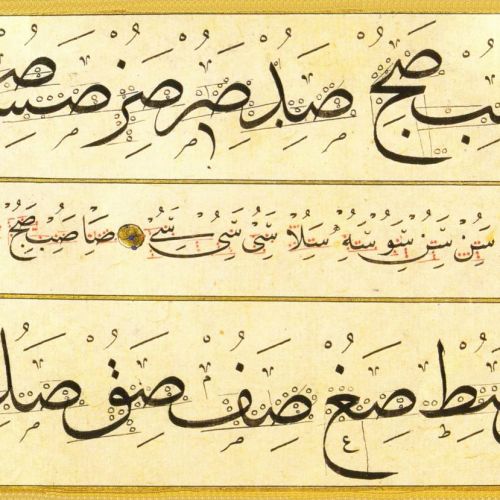 صب صج صد صر صر صس
سن سن سو سه سلا سى سى سى صا صب صج
صط صع صف صق صل